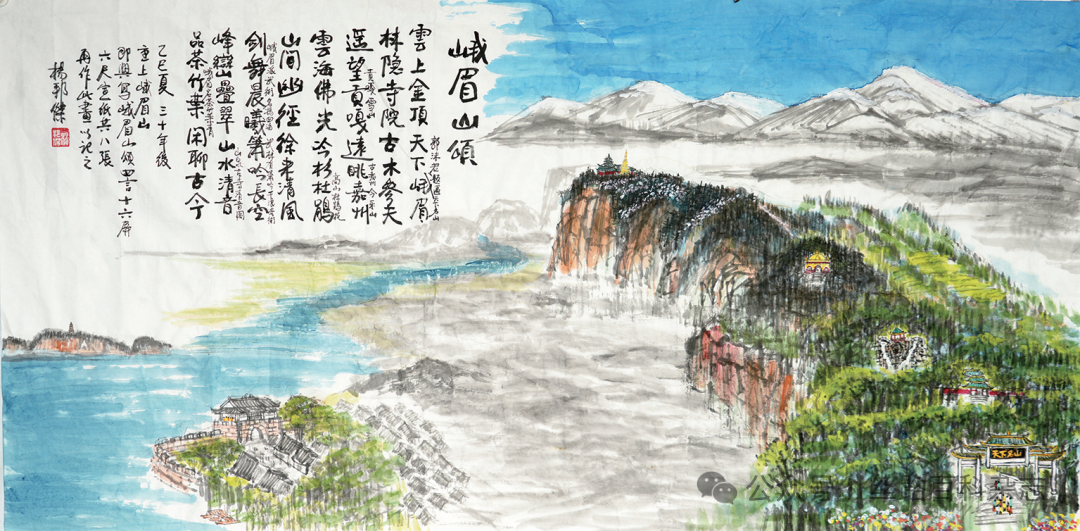 峨眉山頌
雲上金頂 天下峨眉
林隐寺院 古木參天
遥望貢嘎 遠眺嘉州
貢嘎雪山
雲海佛光 冷杉杜鹃
高山杜鹃花
山間幽徑 徐来清風
剑舞晨曦 箫吟長空
峰巒疊翠 山水清音
品茶竹葉 闲聊古今
乙巳夏 三十年後
重上峨眉山
即興寫峨眉山頌四言十六屏
六尺宣纸共八張
再作此畫以記之
楊邦傑
天下名山
公众号·丝路百科杂志